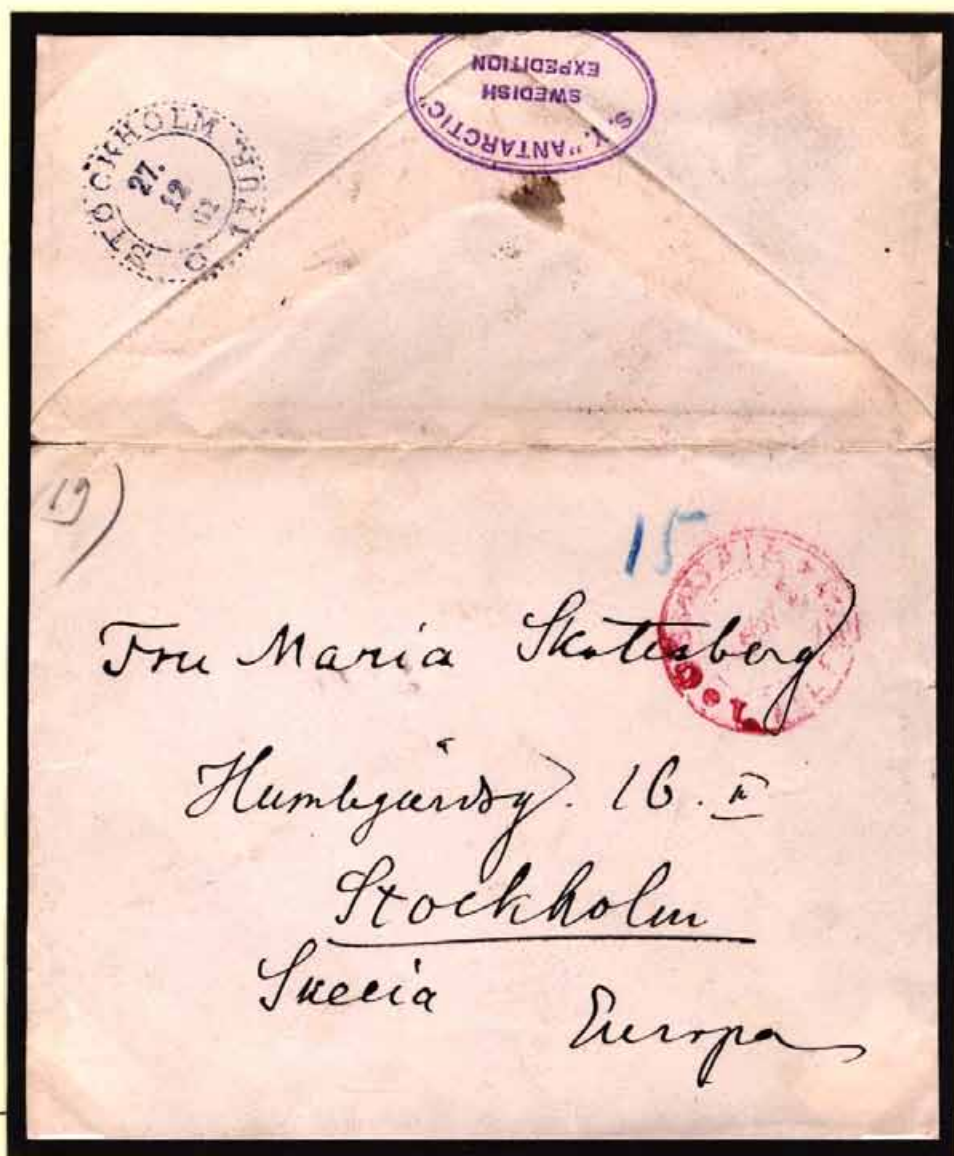 S. Y. "ANTARCTIC"
SWEDISH
EXPEDITION
STOCKHOLM
27.
12
02
15
Fru Maria Skottsberg
Humlegårdsg. 16. II
Stockholm
Suecia
Europa